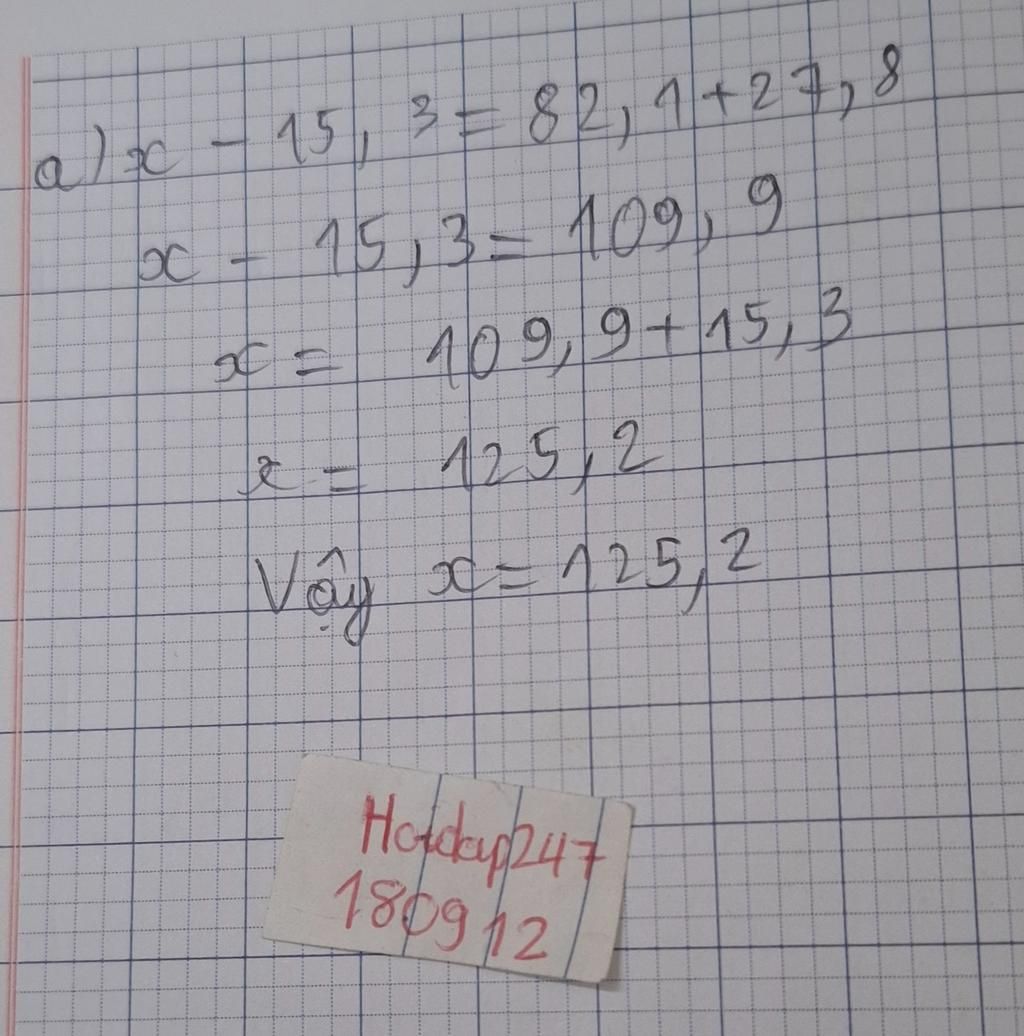 a) x - 15,3 = 82,1 + 27,8
x - 15,3 = 109,9
x = 109,9 + 15,3
x = 125,2
Vậy x = 125,2
Hoidap247
180912